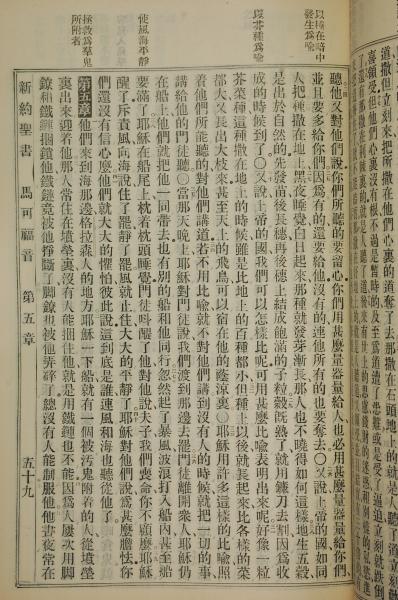 道撒但立刻來把所撒在他們心裏的道奪了去那撒在石頭地上的就是
喜領受但他們心裏沒有根不過是暫時的及至為道遭了患難或是受了逼迫立刻就跌倒
以種在暗中發生為喻
以芥種為喻
使風海平靜
拯救為羣鬼所附者
聽他又對他們說你們所聽的要留心你們用甚麼量器量給人也必用甚麼量器量給你們
並且要多給你們因為有的還要給他沒有的連他所有的也要奪去○又說上帝的國如同
人把種撒在地上黑夜睡覺白日起來那種就發芽漸長那人也不曉得如何這樣地生五穀
是出於自然的先發苗後長穗再後穗上結成飽滿的子粒穀旣熟了就用鐮刀去割因為收
成的時候到了○又說上帝的國我們可以怎樣比呢可用甚麼比喻表明出來呢好像一粒
芥菜種這種撒在地上的時候雖是比地上的百種都小但種上以後就長起來比各樣的菜
都大又長出大枝來甚至天上的飛鳥可以宿在他的蔭涼裏○耶穌用許多這樣的比喻照
着他們所能聽的對他們講道若不用比喻就不對他們講到沒有人的時候就把一切的事
講給他的門徒聽○當那天晚上耶穌對門徒說我們渡到那邊去罷門徒離開衆人耶穌仍
在船上他們就把他一同帶去也有別的船和他同行忽然起了暴風波浪打入船內甚至船
要滿了耶穌在船尾上枕着枕頭睡覺門徒叫醒了他對他說夫子我們喪命你不顧麼耶穌
醒了斥責風向海說住了罷靜了罷風就止住大大的平靜了耶穌對他們說為甚麼膽怯你
們還沒有信心麼他們就大大的懼怕彼此說這到底是誰連風和海也聽從他了
第五章他們來到海那邊格拉森人的地方耶穌一下船就有一個被污鬼附着的人從墳塋
裏出來迎着他那人常住在墳塋裏沒有人能捆住他就是用鐵鏈也不能因為人屢次用脚
鐐和鐵鏈捆鎖他鐵鏈竟被他掙斷了脚鐐也被他弄碎了總沒有人能制服他他晝夜常在
新約聖書 馬可福音 第五章 五十九